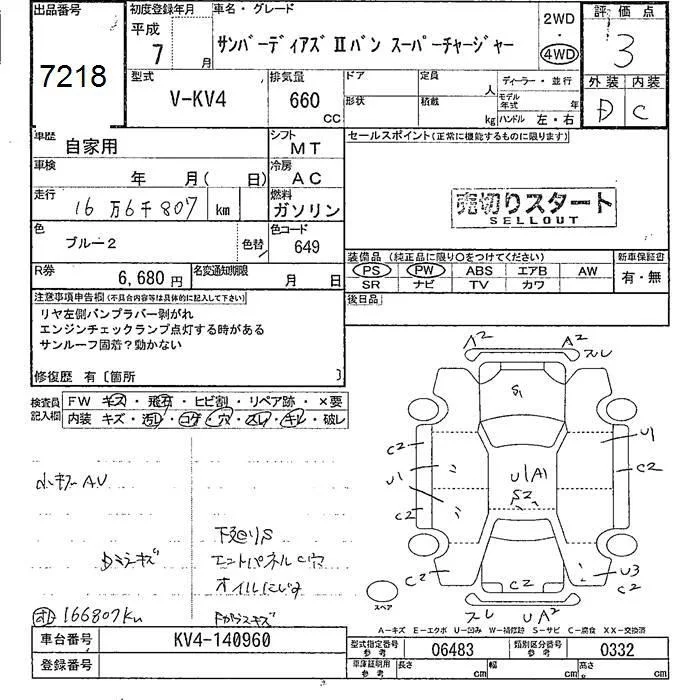 出品番号
7218
初度登録年月
平成
7 月
車名・グレード
サンバーディアズ Ⅱバン スーパーチャージャー
2WD
・
4WD
評価点
3
型式
V-KV4
排気量
660
CC
ドア
定員
人
形状
積載
kg
ディーラー・並行
モデル年式 年
ハンドル 左・右
外装 内装
D C
車歴
自家用
シフト
MT
車検
年 月( 日)
冷房
AC
走行
16万6千807 km
燃料
ガソリン
色
ブルー2
色替
色コード
649
R券
6,680 円
名変通知期限
月 日
セールスポイント(正常に機能するものに限ります)
売切りスタート
SELLOUT
装備品 (純正品に限り○をつけてください)
PS PW ABS エアB AW
SR ナビ TV カワ
新車保証書
有・無
後日品
注意事項申告欄(不具合内容等は具体的に記入して下さい)
リヤ左側バンプラバー剥がれ
エンジンチェックランプ点灯する時がある
サンルーフ固着?動かない
修復歴 有〔箇所 〕
検査員記入欄
FW キズ・飛石・ヒビ割・リペア跡・×要
内装 キズ・汚れ・コゲ・穴・スレ・キレ・破レ
小キズ AU
下廻りS
エントパネルC穴
オイルにじみ
166807km
Fガラスキズ
A2 A2
スレ
S1
C2
U1
C2
U1
C2
U1 A1
S2
C2
C2
U3
C2
スレ
U A2
スペア
A—キズ E—エクボ U—凹み W—補修跡 S—サビ C—腐食 XX—交換済
車台番号
KV4-140960
登録番号
型式指定番号
参考
06483
類別区分番号
参考
0332
車庫証明用
参考
長さ cm
幅 cm
高さ cm